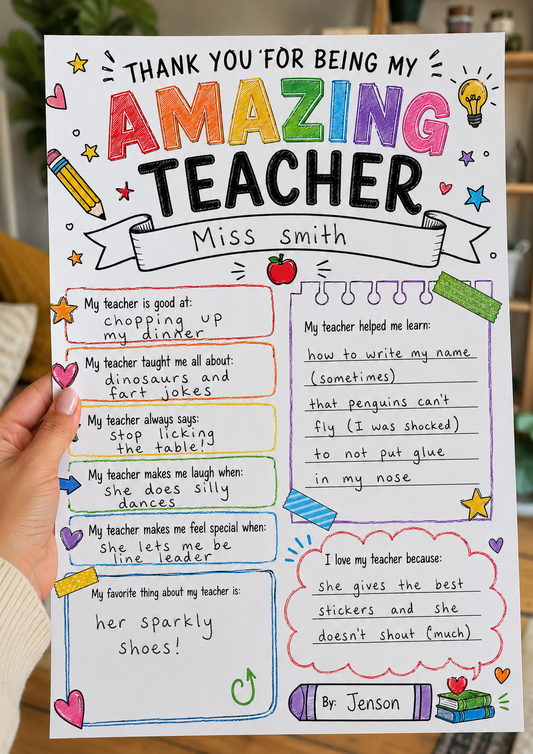 THANK YOU FOR BEING MY
AMAZING
TEACHER
Miss smith
My teacher is good at:
chopping up
my dinner
My teacher taught me all about:
dinosaurs and
fart jokes
My teacher always says:
stop licking
the table!
My teacher makes me laugh when:
she does silly
dances
My teacher makes me feel special when:
she lets me be
line leader
My favorite thing about my teacher is:
her sparkly
shoes!
My teacher helped me learn:
how to write my name
(sometimes)
that penguins can't
fly (I was shocked)
to not put glue
in my nose
I love my teacher because:
she gives the best
stickers and she
doesn't shout (much)
By: Jenson